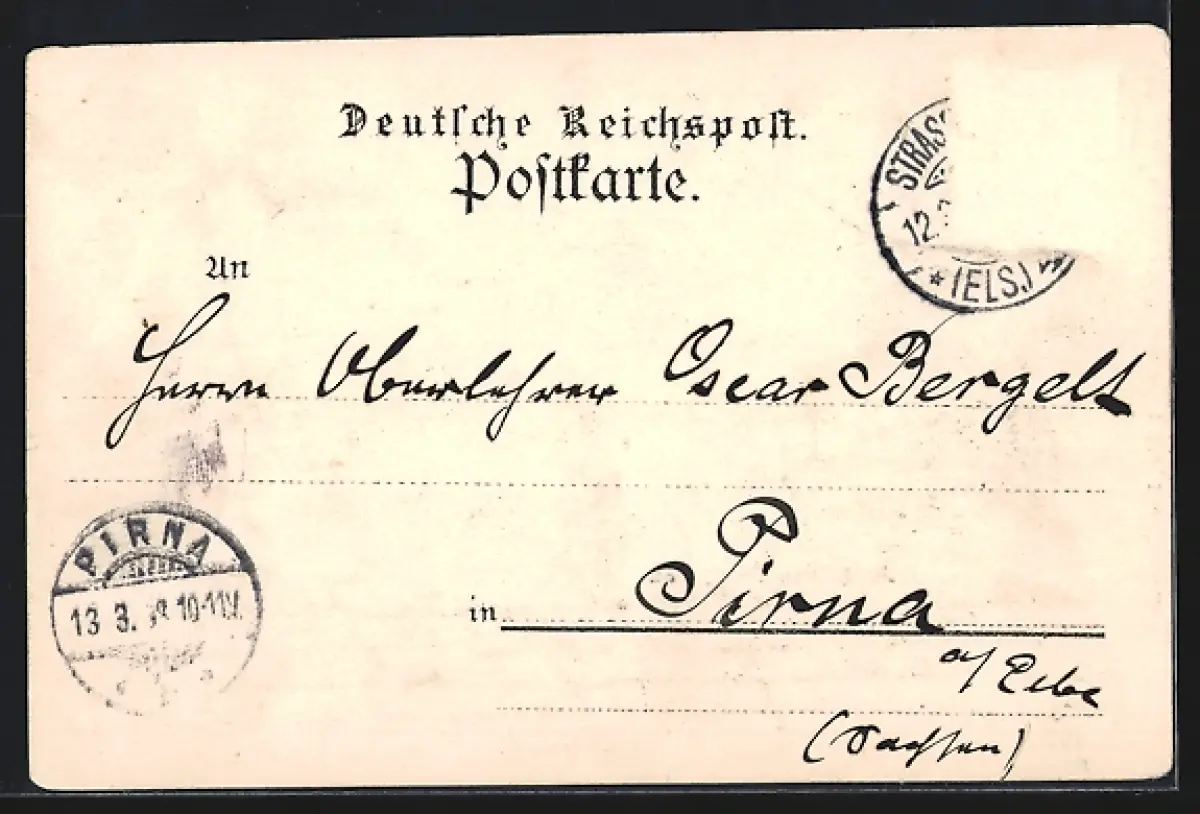 Deutsche Reichspost.
Postkarte.
STRASS
12.
* (ELS.)
An
Herrn Oberlehrer Oscar Bergelt
PIRNA
13 3. 10-11V.
in Pirna
a/ Elbe
(Sachsen)